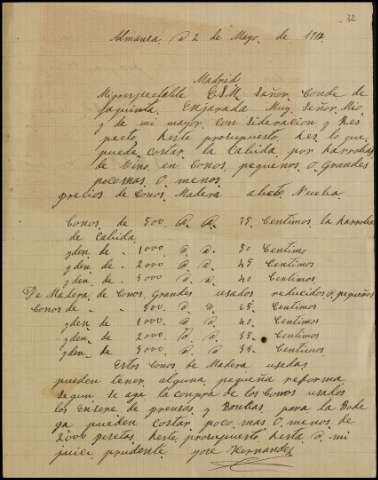 32
Almansa. D 2 de Mayo. de 1912
Madrid
Mi respectable E.S.M Señor. Conde de
la quinta. Enjarada Muy. Señor. Mio
y de mi mayor. con sideracion y Res
pecto, heste presupuesto hes lo que
puede costar. la Cabida, por harrobas
de Vino. en Conos, pequenos. O. Grandes
poco mas. O. menos.
precios de Conos. Madera abeto Nueba.
Conos. de 500 @ @. 75. Centimos. la harroba
de Cabida
yden de - 1000 @ @. 50 Centimos
yden. de - 2000 @ @. 45 Centimos
yden. de - 3000 @ @. 40 Centimos
De Madera, de Conos, Grandes usados reducidos. O. pequeños
Conos de - 500. @. @ 45. Centimos
yden. de 1000. @. @ 40. Centimos
yden. de 2000 @. @ 35. Centimos
yden. de 3000 @. @ 35. Centimos
Estos Conos de Madera usadas
pueden tener, alguna, pequeña reforma
segun se aga la conpra de los Conos usados
los Ensere de prensas, y para la Bode
ga pueden costar poco. mas. O. menos. de
2000 pesetas, heste, presupuesto hesta D. mi
juici prudente José Hernandez